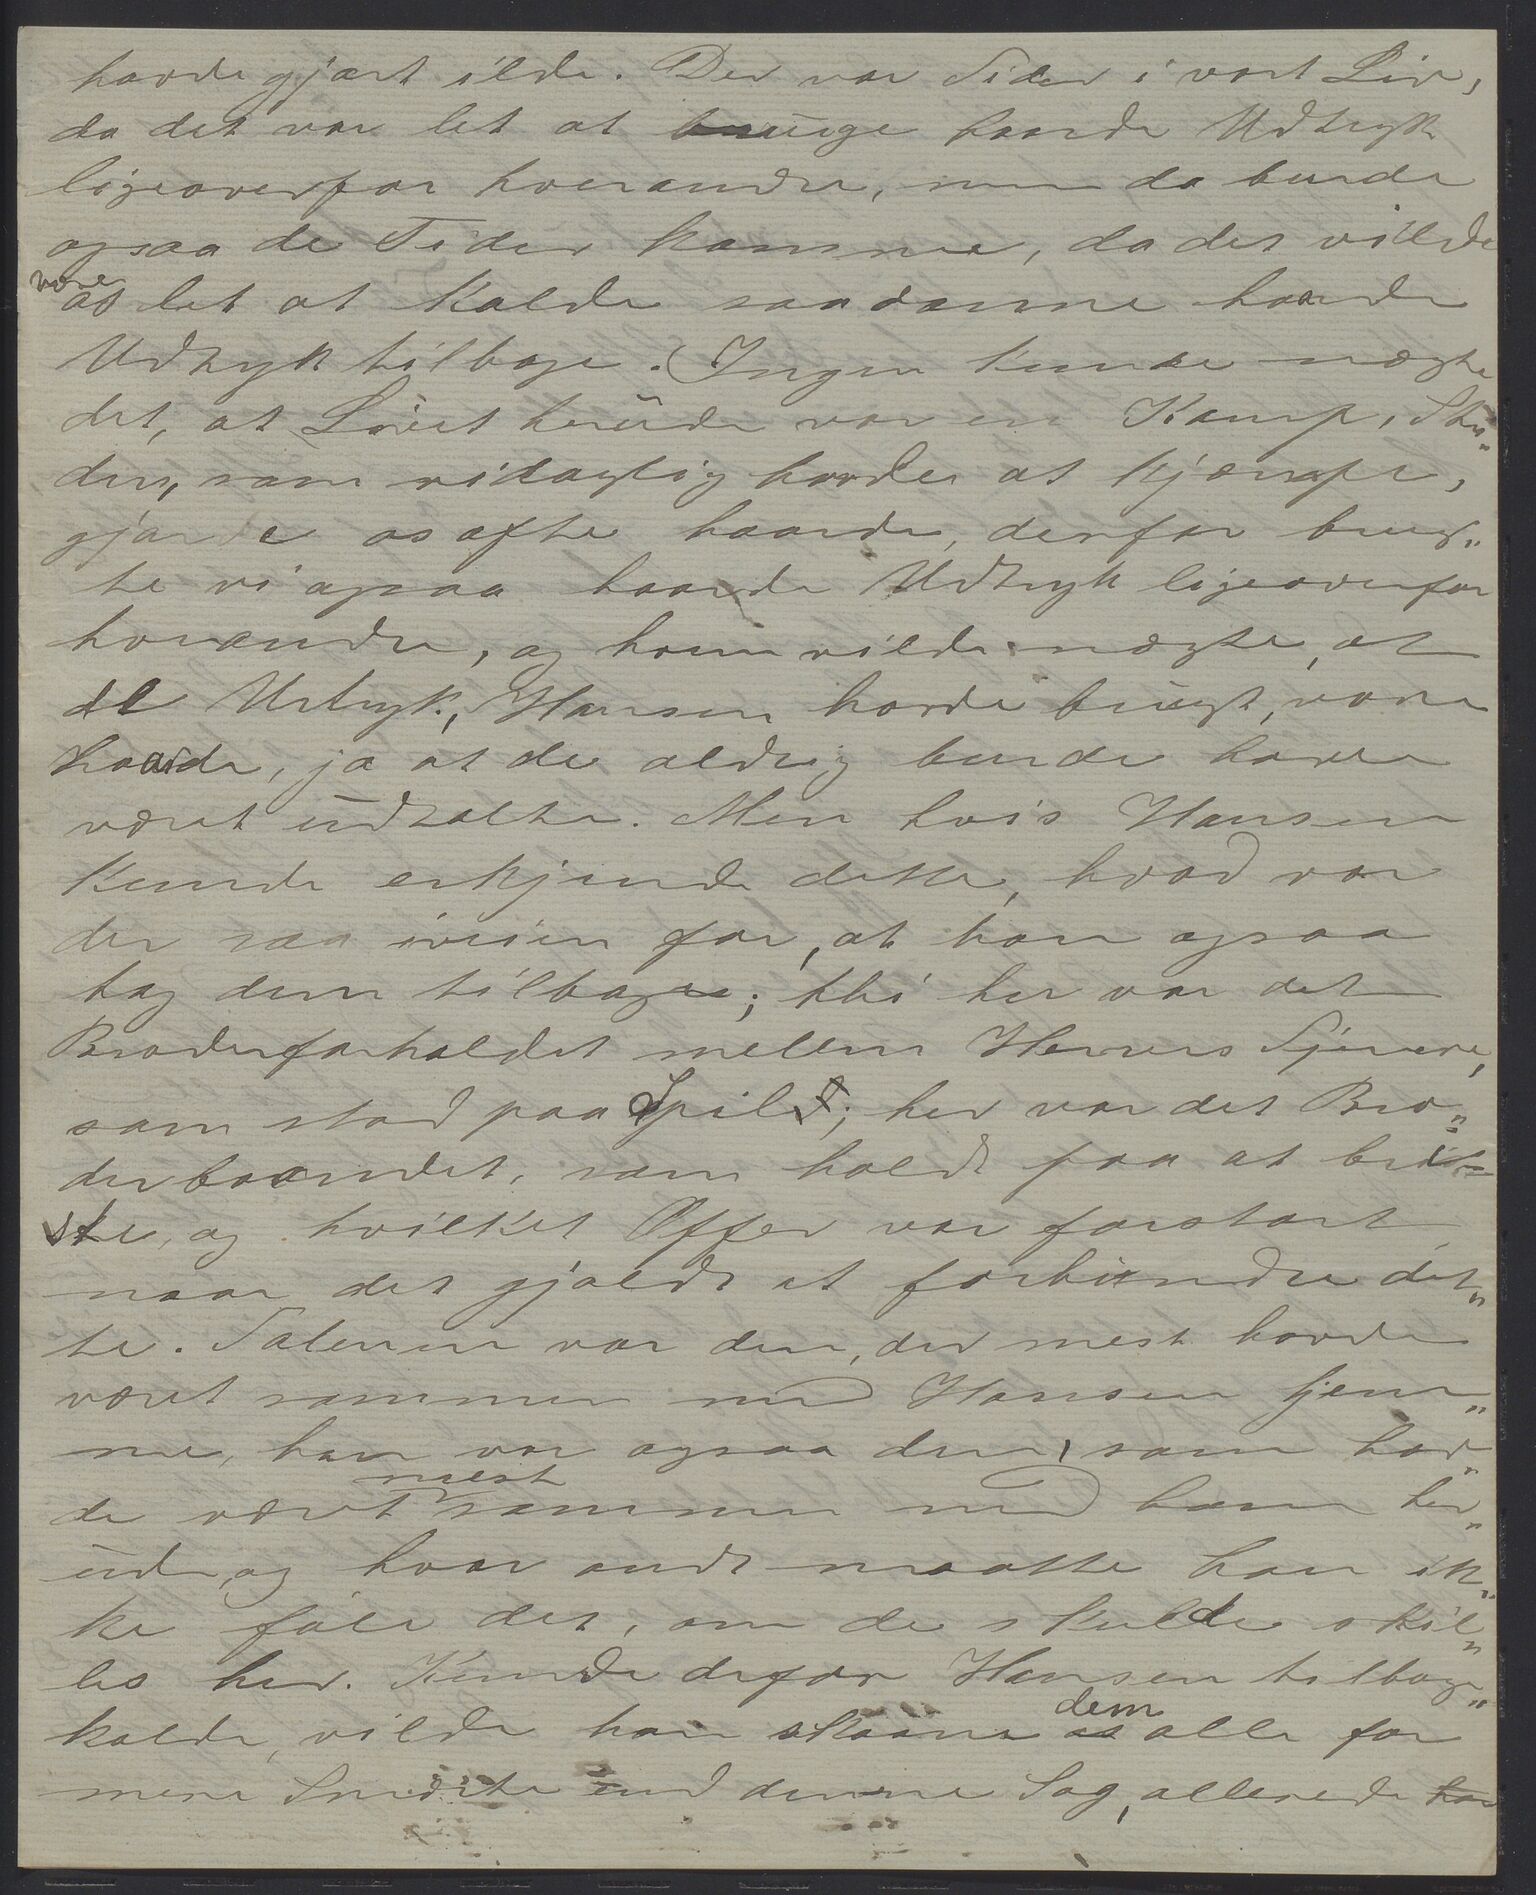 havde gjort ilde. Der var Tider i vort Liv,
da det var let at bruge haarde Udtryk
ligeoverfor hverandre, men da burde
ogsaa de Tider komme, da det vilde
være os let at kalde saadanne haarde
Udtryk tilbage. (Ingen kunde nægte
det, at Livet herude var en Kamp, Stri„
den, som vi dagligt havde at kjæmpe,
gjorde os ofte haarde, derfor brug„
te vi ogsaa haarde Udtryk ligeoverfor
hverandre, og han vilde nægte, at
de Udtryk, Hansen havde brugt, vare
haarde, ja at de aldrig burde have
været udtalte. Men hvis Hansen
kunde erkjende dette, hvad var
der saa iveien for, at han ogsaa
tog dem tilbage; thi her var det
Broderforholdet mellem Herrens Tjenere,
som stod paa Spil; her var det Bro„
derbaandet, som holdt paa at bri„
ste, og hvilket Offer var forstort,
naar det gjaldt at forhindre det„
te. Solerum var den, der mest havde
været sammen med Hansen hjem„
me, han var ogsaa den, som hav„
de været mest sammen med ham her„
ude, og hvor ondt maatte han ik„
ke føle det, om de skulde skil„
les her. Kunde derfor Hansen tilbage„
kalde, vilde han skaane dem alle for
mere Smerte end denne Sag allerede